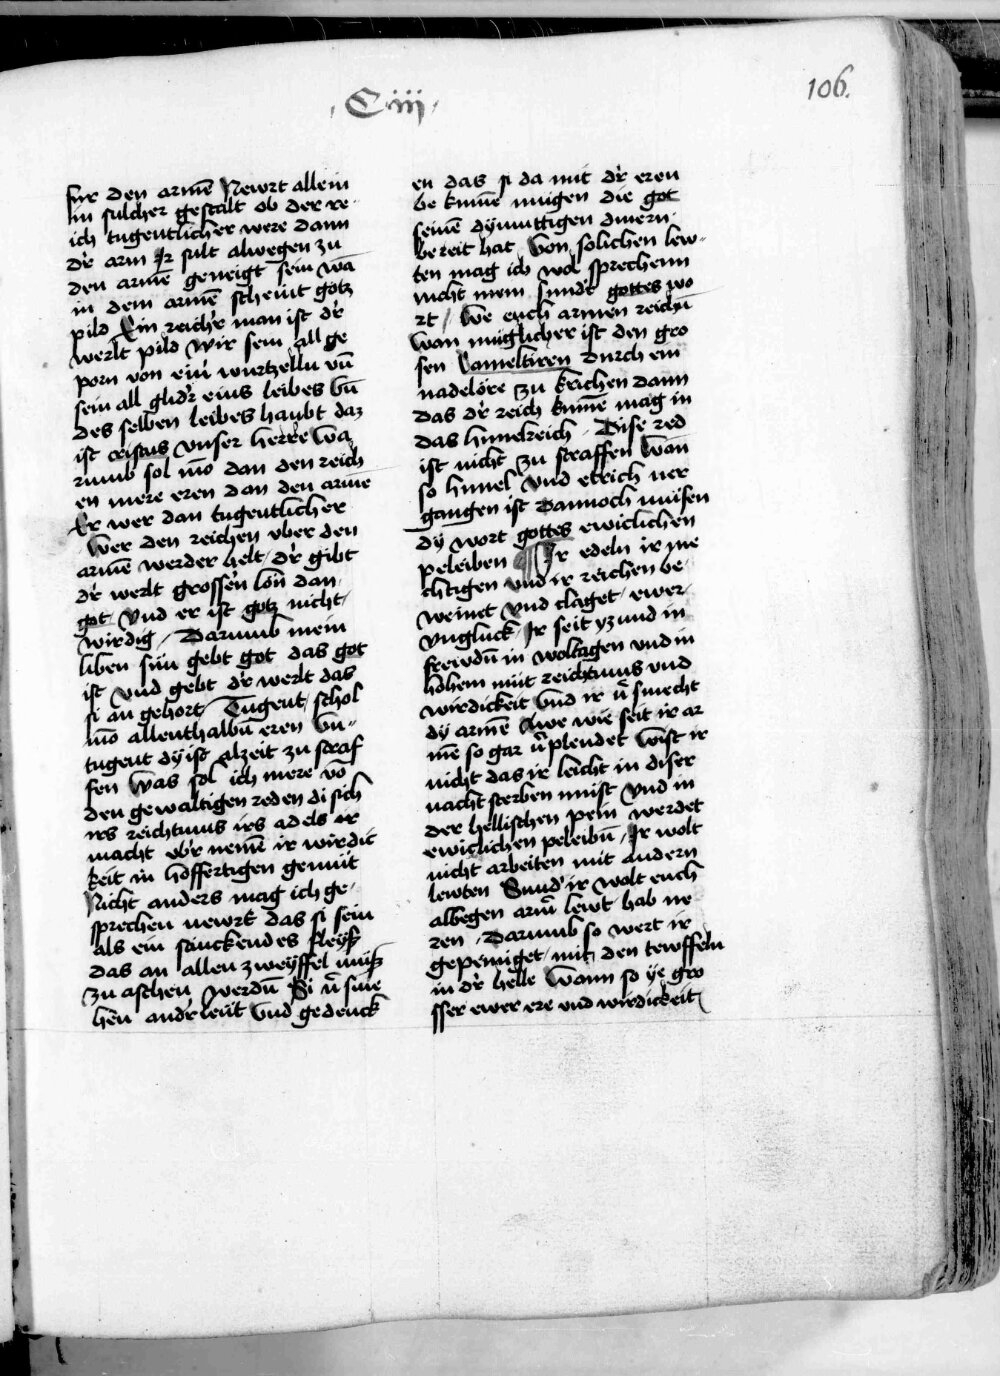 106.
Ciij
fur den armē Newrt allein
in sulcher gestalt ob der re-
ich tugentlicher were dann
d'r arm Ir sult alwegen zu
den armē geneigt sein wā
in dem armē scheint gotz
pild Ein reich'r man ist d'r
werlt pild wir sein all ge
porn von ein' wurtzelln vn̄
sein all glid'r eins leibes vn̄
des selben leibes haubt daz
ist cristus vnser herre wa
rumb sol mō dan den reich
en mere eren dan den armē
Er wer dan tugentlicher
Wer den reichen vber den
armē werder helt d'r gibt
d'r werlt grossen lon̄ dan
got vnd er ist gotz nicht
wirdig / Darumb mein
liben sun gebt got das got
ist vnd gebt d'r werlt das
si an gehort Tugent schol
mō allenthalbn̄ eren vn-
tugent dy ist alzeit zu straf
fen Was sol ich mere vō
den gewaltigen reden di sich
irs reichtums irs adels ir
macht vb'r nemē ir wirdic
keit in hoffertigen gemüt
Nicht anders mag ich ge-
sprechen newrt das si sein
als ein stinckendes fleysch
das an allen zweyffel müß
zu aschen werdn̄ Si v'sme
hen̄ and'r leüt vnd gedenck
en das si da mit d'r eren
be kumē mugen die got
seinē dymuttigen dinern
bereit hat Von solichen lew-
ten mag ich wol sprechenn
nicht mein sund'r gottes wo
rt / We euch armen reichn̄
wan müglicher ist den gro
sen Cameltiren durch ein
nadelöre zu krichen dann
das d'r reich kumē mag in
das himelreich Dise red
ist nicht zu straffen Wan
so himel vnd ertrich ver
gangen ist Dannoch müsen
dy wort gottes ewiclichen
peleiben Ir edeln ir me
chtigen vnd ir reichen be-
weinet vnd claget ewer
vngluck Ir seit yzund in
frewdn̄ in woltagen vnd in
hohem müt reichtums vnd
wirdickeit Vnd ir v'smecht
dy armē Awe wie seit ir ar
mē so gar v'plendet Wist ir
nicht das ir leicht in diser
nacht sterben müst Vnd in
der hellischen pein werdet
ewiclichen peleibn̄ / Ir wolt
nicht arbeiten mit andern
lewten Sund' ir wolt euch
albegen arm' lewt hab ne
ren / Darumb so wert ir
gepeiniget mit den tewffeln
in d'r helle Wann so ye gro
sser ewer ere vnd wirdickeit